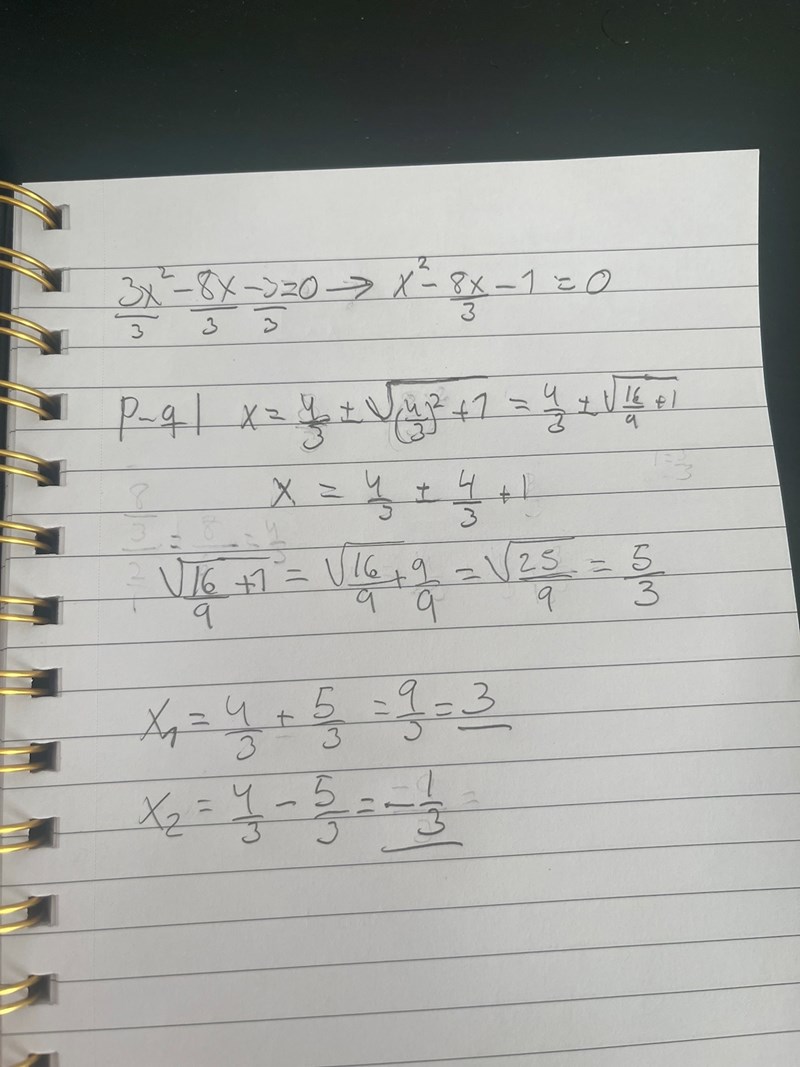 3x²/3 - 8x/3 - 3/3 = 0 → x² - 8x/3 - 1 = 0
P-q| x = 4/3 ± √((4/3)² + 1) = 4/3 ± √(16/9 + 1)
x = 4/3 ± 4/3 + 1
√(16/9 + 1) = √(16/9 + 9/9) = √(25/9) = 5/3
x₁ = 4/3 + 5/3 = 9/3 = 3
x₂ = 4/3 - 5/3 = -1/3